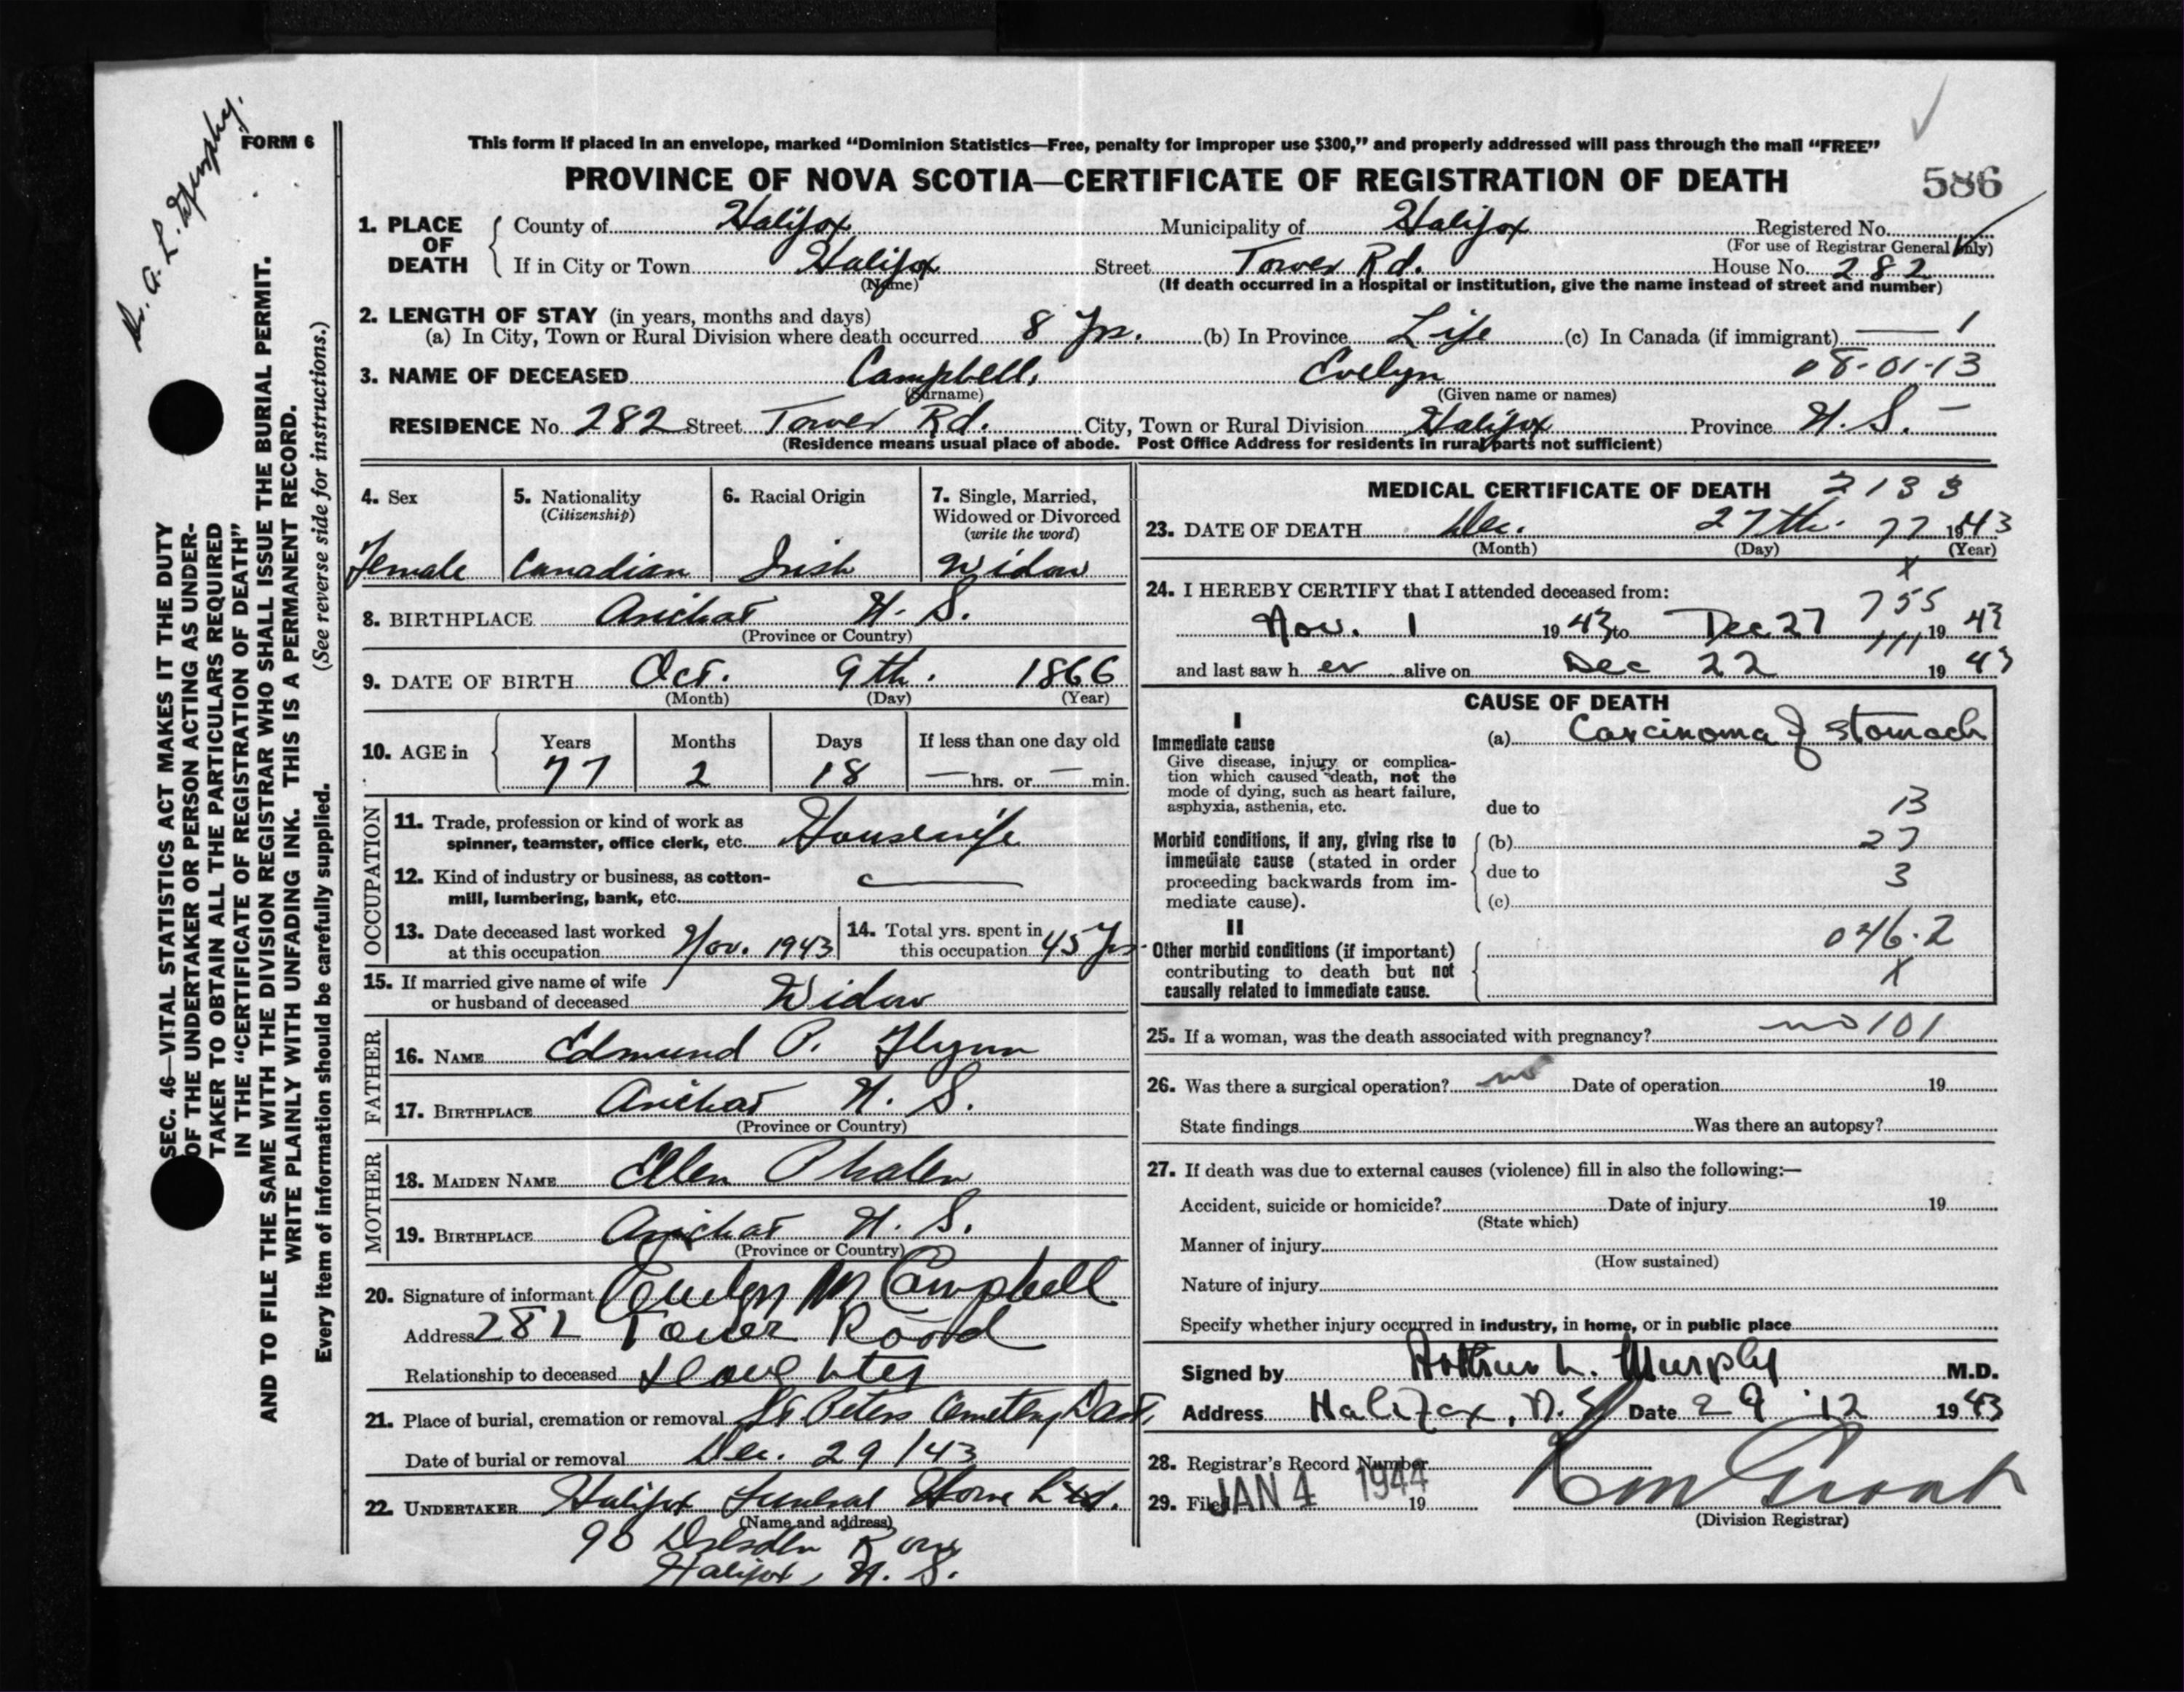 Dr. A. L. Murphy.
FORM 6
This form if placed in an envelope, marked “Dominion Statistics—Free, penalty for improper use $300,” and properly addressed will pass through the mail “FREE”
PROVINCE OF NOVA SCOTIA—CERTIFICATE OF REGISTRATION OF DEATH
586
1. PLACE OF DEATH
County of Halifax Municipality of Halifax Registered No.
(For use of Registrar General only)
If in City or Town Halifax Street Tower Rd. House No. 282
(Name) (If death occurred in a Hospital or institution, give the name instead of street and number)
2. LENGTH OF STAY (in years, months and days)
(a) In City, Town or Rural Division where death occurred 8 Yrs. (b) In Province Life (c) In Canada (if immigrant) — 1
3. NAME OF DECEASED Campbell, Evelyn 08-01-13
(Surname) (Given name or names)
RESIDENCE No. 282 Street Tower Rd. City, Town or Rural Division Halifax Province N. S. —
(Residence means usual place of abode. Post Office Address for residents in rural parts not sufficient)
4. Sex
Female
5. Nationality
(Citizenship)
Canadian
6. Racial Origin
Irish
7. Single, Married,
Widowed or Divorced
(write the word)
Widow
8. BIRTHPLACE Arichat N. S.
(Province or Country)
9. DATE OF BIRTH Oct. 9th. 1866
(Month) (Day) (Year)
10. AGE in
Years Months Days If less than one day old
77 2 18 — hrs. or — min.
OCCUPATION
11. Trade, profession or kind of work as
spinner, teamster, office clerk, etc. Housewife
12. Kind of industry or business, as cotton-
mill, lumbering, bank, etc.
13. Date deceased last worked
at this occupation Nov. 1943
14. Total yrs. spent in
this occupation 45 Yrs.
15. If married give name of wife
or husband of deceased Widow
FATHER
16. NAME Edmund P. Flynn
17. BIRTHPLACE Arichat N. S.
(Province or Country)
MOTHER
18. MAIDEN NAME Ellen Phalen
19. BIRTHPLACE Arichat N. S.
(Province or Country)
20. Signature of informant Evelyn M Campbell
Address 282 Tower Road
Relationship to deceased Daughter
21. Place of burial, cremation or removal St Peters Cemetery Dart.
Date of burial or removal Dec. 29/43
22. UNDERTAKER Halifax Funeral Home Ltd.
(Name and address)
90 Dresden Row
Halifax, N. S.
MEDICAL CERTIFICATE OF DEATH 2133
23. DATE OF DEATH Dec. 27th. 77 1943
(Month) (Day) (Year)
X
24. I HEREBY CERTIFY that I attended deceased from:
755
Nov. 1 1943 to Dec 27 1943
and last saw her alive on Dec 22 1943
CAUSE OF DEATH
I
Immediate cause
Give disease, injury or complica-
tion which caused death, not the
mode of dying, such as heart failure,
asphyxia, asthenia, etc.
(a) Carcinoma of stomach
due to 13
Morbid conditions, if any, giving rise to
immediate cause (stated in order
proceeding backwards from im-
mediate cause).
(b) 27
due to 3
(c)
II
Other morbid conditions (if important)
contributing to death but not
causally related to immediate cause.
046.2
X
25. If a woman, was the death associated with pregnancy? no 101
26. Was there a surgical operation? no Date of operation 19
State findings Was there an autopsy?
27. If death was due to external causes (violence) fill in also the following:—
Accident, suicide or homicide? Date of injury 19
(State which)
Manner of injury
(How sustained)
Nature of injury
Specify whether injury occurred in industry, in home, or in public place
Signed by Arthur L. Murphy M.D.
Address Halifax, N.S. Date 29 '12 1943
28. Registrar's Record Number
29. Filed JAN 4 1944 19
(Division Registrar)
SEC. 46—VITAL STATISTICS ACT MAKES IT THE DUTY
OF THE UNDERTAKER OR PERSON ACTING AS UNDER-
TAKER TO OBTAIN ALL THE PARTICULARS REQUIRED
IN THE “CERTIFICATE OF REGISTRATION OF DEATH”
AND TO FILE THE SAME WITH THE DIVISION REGISTRAR WHO SHALL ISSUE THE BURIAL PERMIT.
WRITE PLAINLY WITH UNFADING INK. THIS IS A PERMANENT RECORD.
Every item of information should be carefully supplied. (See reverse side for instructions.)